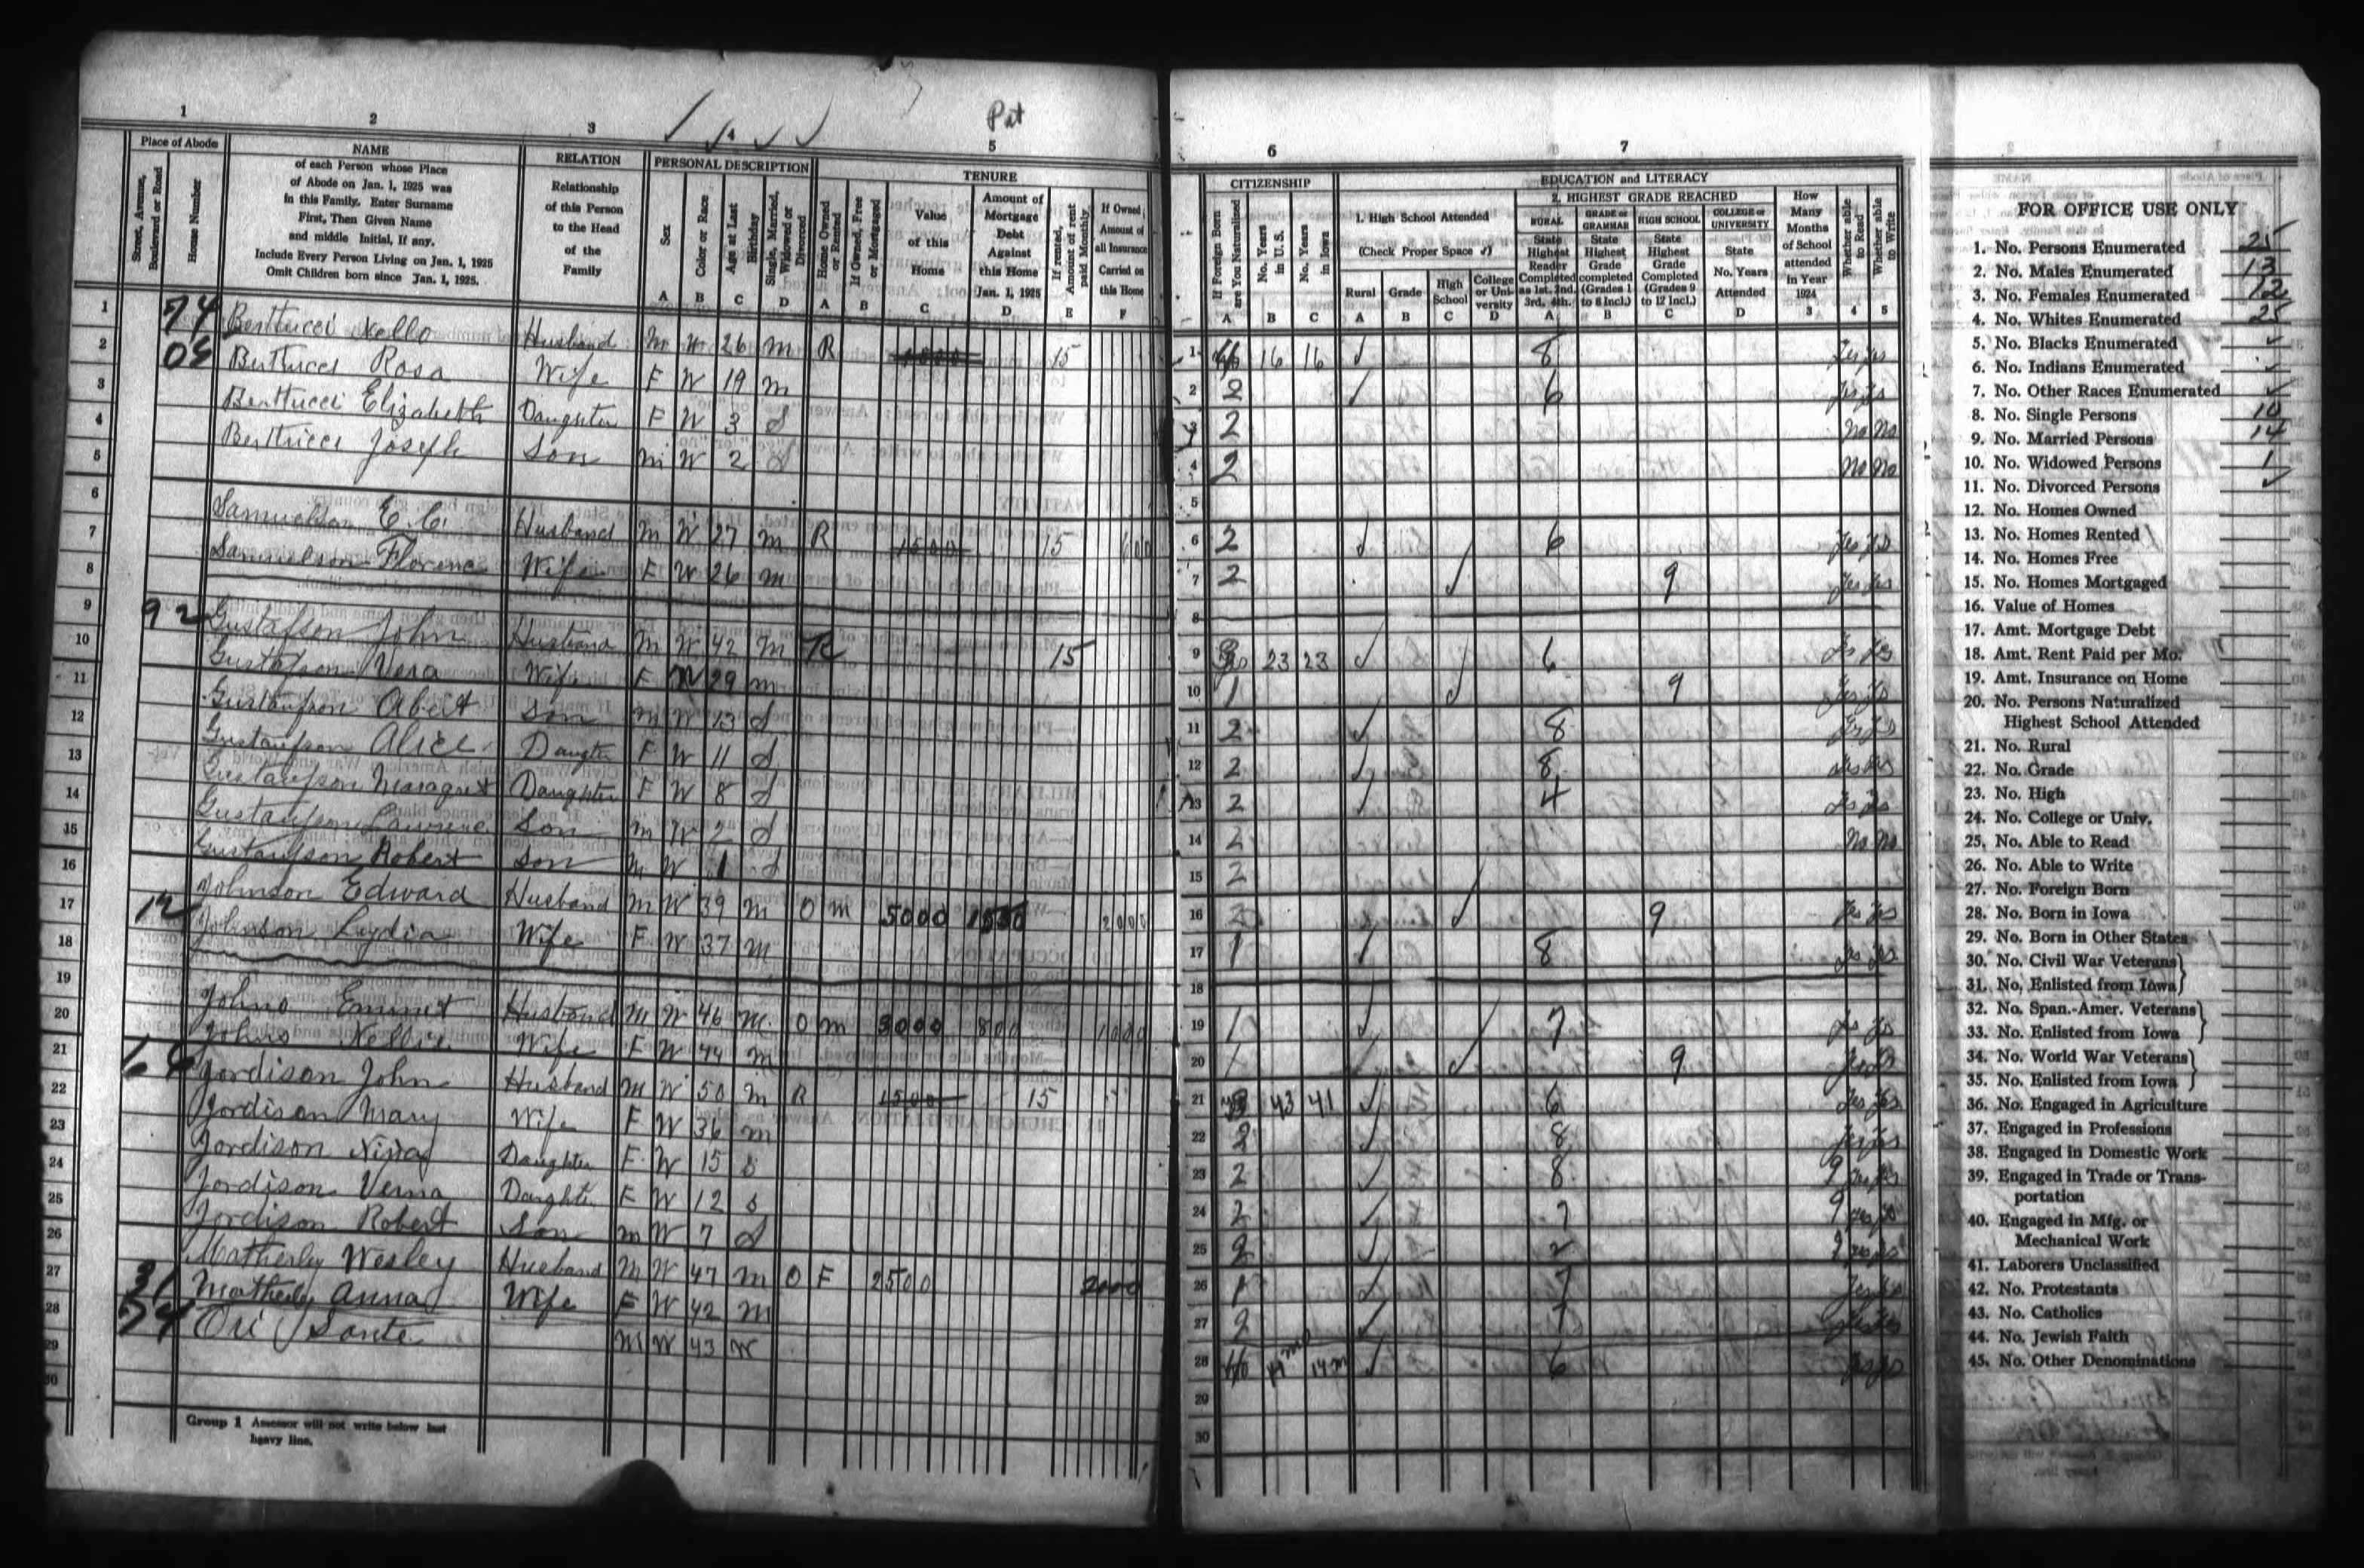 Pat
1 2 3 4 5
Place of Abode
Street, Avenue, Boulevard or Road
House Number
NAME
of each Person whose Place
of Abode on Jan. 1, 1925 was
in this Family. Enter Surname
First, Then Given Name
and middle Initial, If any.
Include Every Person Living on Jan. 1, 1925
Omit Children born since Jan. 1, 1925.
RELATION
Relationship
of this Person
to the Head
of the
Family
PERSONAL DESCRIPTION
Sex
Color or Race
Age at Last Birthday
Single, Married, Widowed or Divorced
A B C D
TENURE
Home Owned or Rented
If Owned, Free or Mortgaged
Value of this Home
Amount of Mortgage Debt Against this Home Jan. 1, 1925
If rented, Amount of rent paid Monthly
If Owned, Amount of all Insurance Carried on this Home
A B C D E F
1 74 Berttucci Nello Husband M W 26 M R 1800 15
2 08 Berttucci Rosa Wife F W 19 M
3 Berttucci Elizabeth Daughter F W 3 S
4 Berttucci Joseph Son M W 2 S
5
6 Samuelson E. C. Husband M W 27 M R 1500 15
7 Samuelson Florence Wife F W 26 M
8
9 92 Gustafson John Husband M W 42 M R 15
10 Gustafson Vera Wife F W 29 M
11 Gustafson Albert Son M W 13 S
12 Gustafson Alice Daugter F W 11 S
13 Gustafson Maragret Daughter F W 8 S
14 Gustafson Lawrence Son M W 2 S
15 Gustafson Robert Son M W 1 S
16 Johnson Edward Husband M W 39 M O M 5000 2000
17 12 Johnson Lydia Wife F W 37 M
18
19 Johns Emmet Husband M W 46 M O M 3000 800 1000
20 Johns Nellie Wife F W 44 M
21 Jordison John Husband M W 50 M R 1500 15
22 Jordison Mary Wife F W 36 M
23 Jordison Nina Daughter F W 15 S
24 Jordison Verna Daughter F W 12 S
25 Jordison Robert Son M W 7 S
26 Matherly Wesley Husband M W 47 M O F 2500 2000
27 31 Matherly Anna Wife F W 42 M
28 74 Ori Sante M W 43 W
29
30
Group 1 Assessor will not write below last
heavy line.
6 7
CITIZENSHIP
If Foreign Born are You Naturalized
No. Years in U. S.
No. Years in Iowa
A B C
EDUCATION and LITERACY
1. High School Attended
(Check Proper Space ✓)
Rural Grade High School College or University
A B C D
2. HIGHEST GRADE REACHED
RURAL
State Highest Reader Completed as 1st. 2nd. 3rd. 4th.
GRADE or GRAMMAR
State Highest Grade completed (Grades 1 to 8 Incl.)
HIGH SCHOOL
State Highest Grade Completed (Grades 9 to 12 Incl.)
COLLEGE or UNIVERSITY
State No. Years Attended
A B C D
How Many Months of School attended in Year 1924
3
Whether able to Read
4
Whether able to Write
5
1 16 16 ✓ 8 Yes Yes
2 2 ✓ 6 Yes Yes
3 2 No No
4 2 No No
5
6 2 ✓ 6 Yes Yes
7 2 ✓ 9 Yes Yes
8
9 23 23 ✓ 6 Yes Yes
10 1 ✓ 9 Yes Yes
11 2 ✓ 8 Yes Yes
12 2 ✓ 8 Yes Yes
13 2 ✓ 4 Yes Yes
14 2 No No
15 2
16 2 ✓ 9 Yes Yes
17 1 ✓ 8 Yes Yes
18
19 1 ✓ 7 Yes Yes
20 1 ✓ 9 Yes Yes
21 43 41 ✓ 6 Yes Yes
22 2 ✓ 8 Yes Yes
23 2 ✓ 8 9 Yes Yes
24 2 ✓ 7 9 Yes Yes
25 2 ✓ 2 9 Yes Yes
26 1 ✓ 7 Yes Yes
27 2 ✓ 7 Yes Yes
28 14m ✓ 6 Yes Yes
29
30
FOR OFFICE USE ONLY
1. No. Persons Enumerated 25
2. No. Males Enumerated 13
3. No. Females Enumerated 12
4. No. Whites Enumerated 25
5. No. Blacks Enumerated ✓
6. No. Indians Enumerated ✓
7. No. Other Races Enumerated ✓
8. No. Single Persons 10
9. No. Married Persons 14
10. No. Widowed Persons 1
11. No. Divorced Persons ✓
12. No. Homes Owned
13. No. Homes Rented
14. No. Homes Free
15. No. Homes Mortgaged
16. Value of Homes
17. Amt. Mortgage Debt
18. Amt. Rent Paid per Mo.
19. Amt. Insurance on Home
20. No. Persons Naturalized
Highest School Attended
21. No. Rural
22. No. Grade
23. No. High
24. No. College or Univ.
25. No. Able to Read
26. No. Able to Write
27. No. Foreign Born
28. No. Born in Iowa
29. No. Born in Other States
30. No. Civil War Veterans
31. No. Enlisted from Iowa
32. No. Span.-Amer. Veterans
33. No. Enlisted from Iowa
34. No. World War Veterans
35. No. Enlisted from Iowa
36. No. Engaged in Agriculture
37. Engaged in Professions
38. Engaged in Domestic Work
39. Engaged in Trade or Trans-
portation
40. Engaged in Mfg. or
Mechanical Work
41. Laborers Unclassified
42. No. Protestants
43. No. Catholics
44. No. Jewish Faith
45. No. Other Denominations